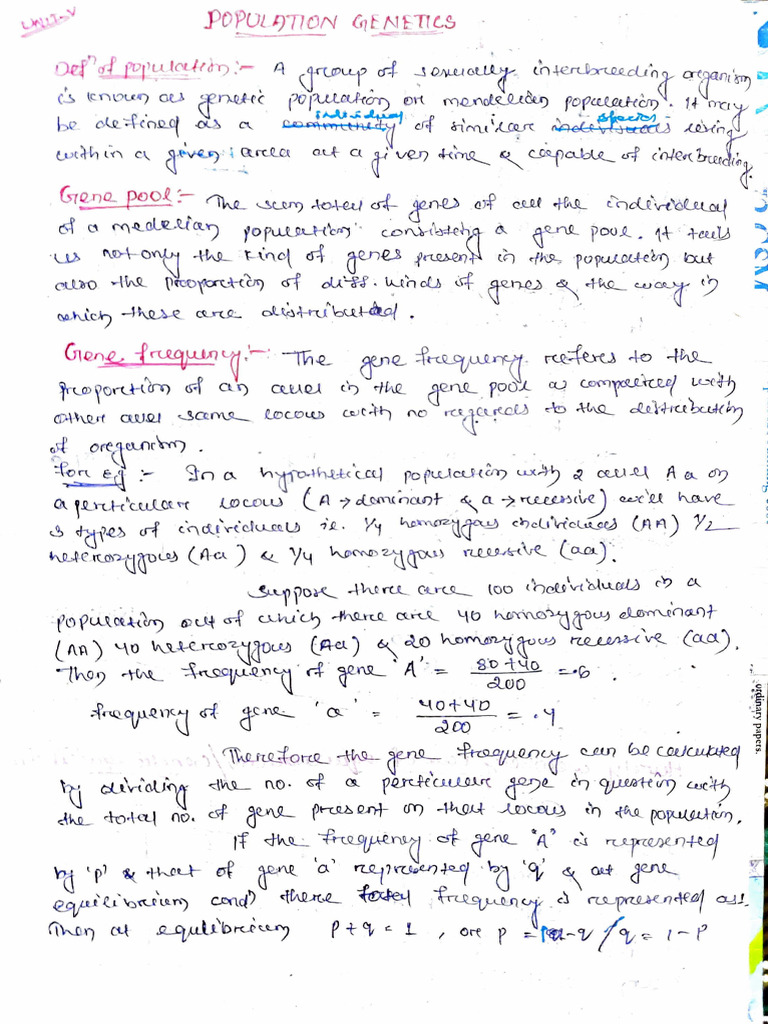 UNIT-V
POPULATION GENETICS
Defⁿ of population:- A group of sexually interbreeding organism
is known as genetic population or mendelian population. It may
be defined as a individual of similar species living
within a given area at a given time & capable of interbreeding.
Gene pool:- The sum total of genes of all the individual
of a medelian population consisting a gene pool. It tells
us not only the kind of genes present in the population but
also the proportion of diff. kinds of genes & the way in
which these are distributed.
Gene frequency:- The gene frequency referes to the
proportion of an allel in the gene pool as compared with
other allel same locous with no regards to the distribution
of oreganism.
For Eg :- In a hypothetical population with 2 allel A a on
a perticular locous (A → dominant & a → recessive) we'll have
3 types of individuals ie. 1/4 homozygous individuals (AA) 1/2
heterozygous (Aa) & 1/4 homozygous recessive (aa).
Suppose there are 100 individuals in a
population out of which there are 40 homozygous dominant
(AA) 40 heterozygous (Aa) & 20 homozygous recessive (aa).
Then the frequency of gene 'A' = 80+40/200 = .6 .
frequency of gene 'a' = 40+40/200 = .4
Therefore the gene frequency can be calculated
by dividing the no. of a perticular gene in question with
the total no. of gene present on that locous in the population.
If the frequency of gene "A" is represented
by 'p' & that of gene 'a' represented by 'q' & at gene
equilibrium condⁿ there total frequency is represented as 1.
Then at equlibrium p + q = 1 , or p = 1-q / q = 1 - p
ordinary papers.